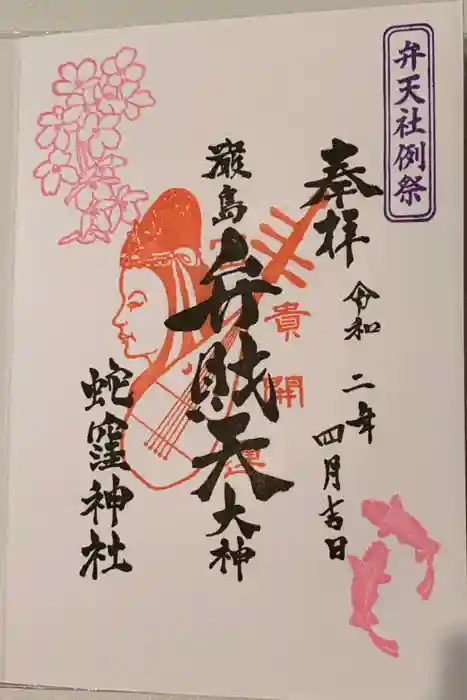 弁天社例祭
奉拝
令和二年
四月吉日
貴
開運
巌島
弁財天
大神
蛇窪神社